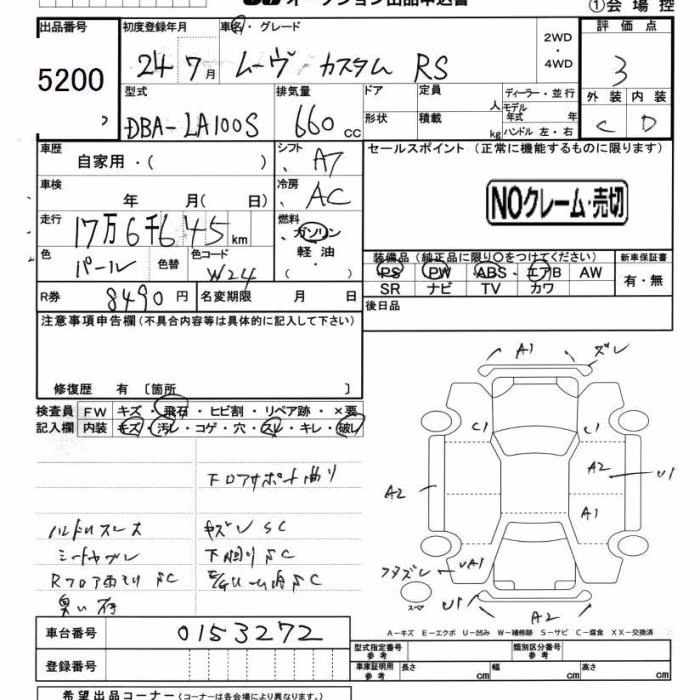 オークション出品申込書
①会場控
出品番号 初度登録年月 車名・グレード 2WD・4WD 評価点
5200 24 7月 ムーヴ カスタム RS 3
型式 排気量 ドア 定員 人 ディーラー・並行 外装 内装
DBA-LA100S 660cc 形状 積載 kg モデル年式 年 ハンドル 左・右 C D
車歴 自家用・( ) シフト A7 セールスポイント(正常に機能するものに限ります)
車検 年 月( 日) 冷房 AC
NOクレーム・売切
走行 17万6千645km 燃料 ガソリン 軽油 ( )
色 パール 色替 色コード W24
装備品(純正品に限り○をつけてください) 新車保証書
PS PW ABS エアB AW 有・無
SR ナビ TV カワ
R券 8490円 名変期限 月 日
後日品
注意事項申告欄(不具合内容等は具体的に記入して下さい)
修復歴 有 〔箇所 〕
検査員 FW キズ・飛石・ヒビ割・リペア跡・×要
記入欄 内装 キズ・汚レ・コゲ・穴・スレ・キレ・破レ
A1 ズレ
C1
A2 U1
A2
A1
下ロアサポート曲り
ハンドルスレ大
シートヤブレ
下廻りSC
UA1
U1 A2
スペア
A-キズ E-エクボ U-凹み W-補修跡 S-サビ C-腐食 XX-交換済
車台番号 0153272
型式指定番号 参考 類別区分番号 参考
登録番号
車車証明用 参考 長さ cm 幅 cm 高さ cm
希望出品コーナー(コーナーは各会場により異なります。)